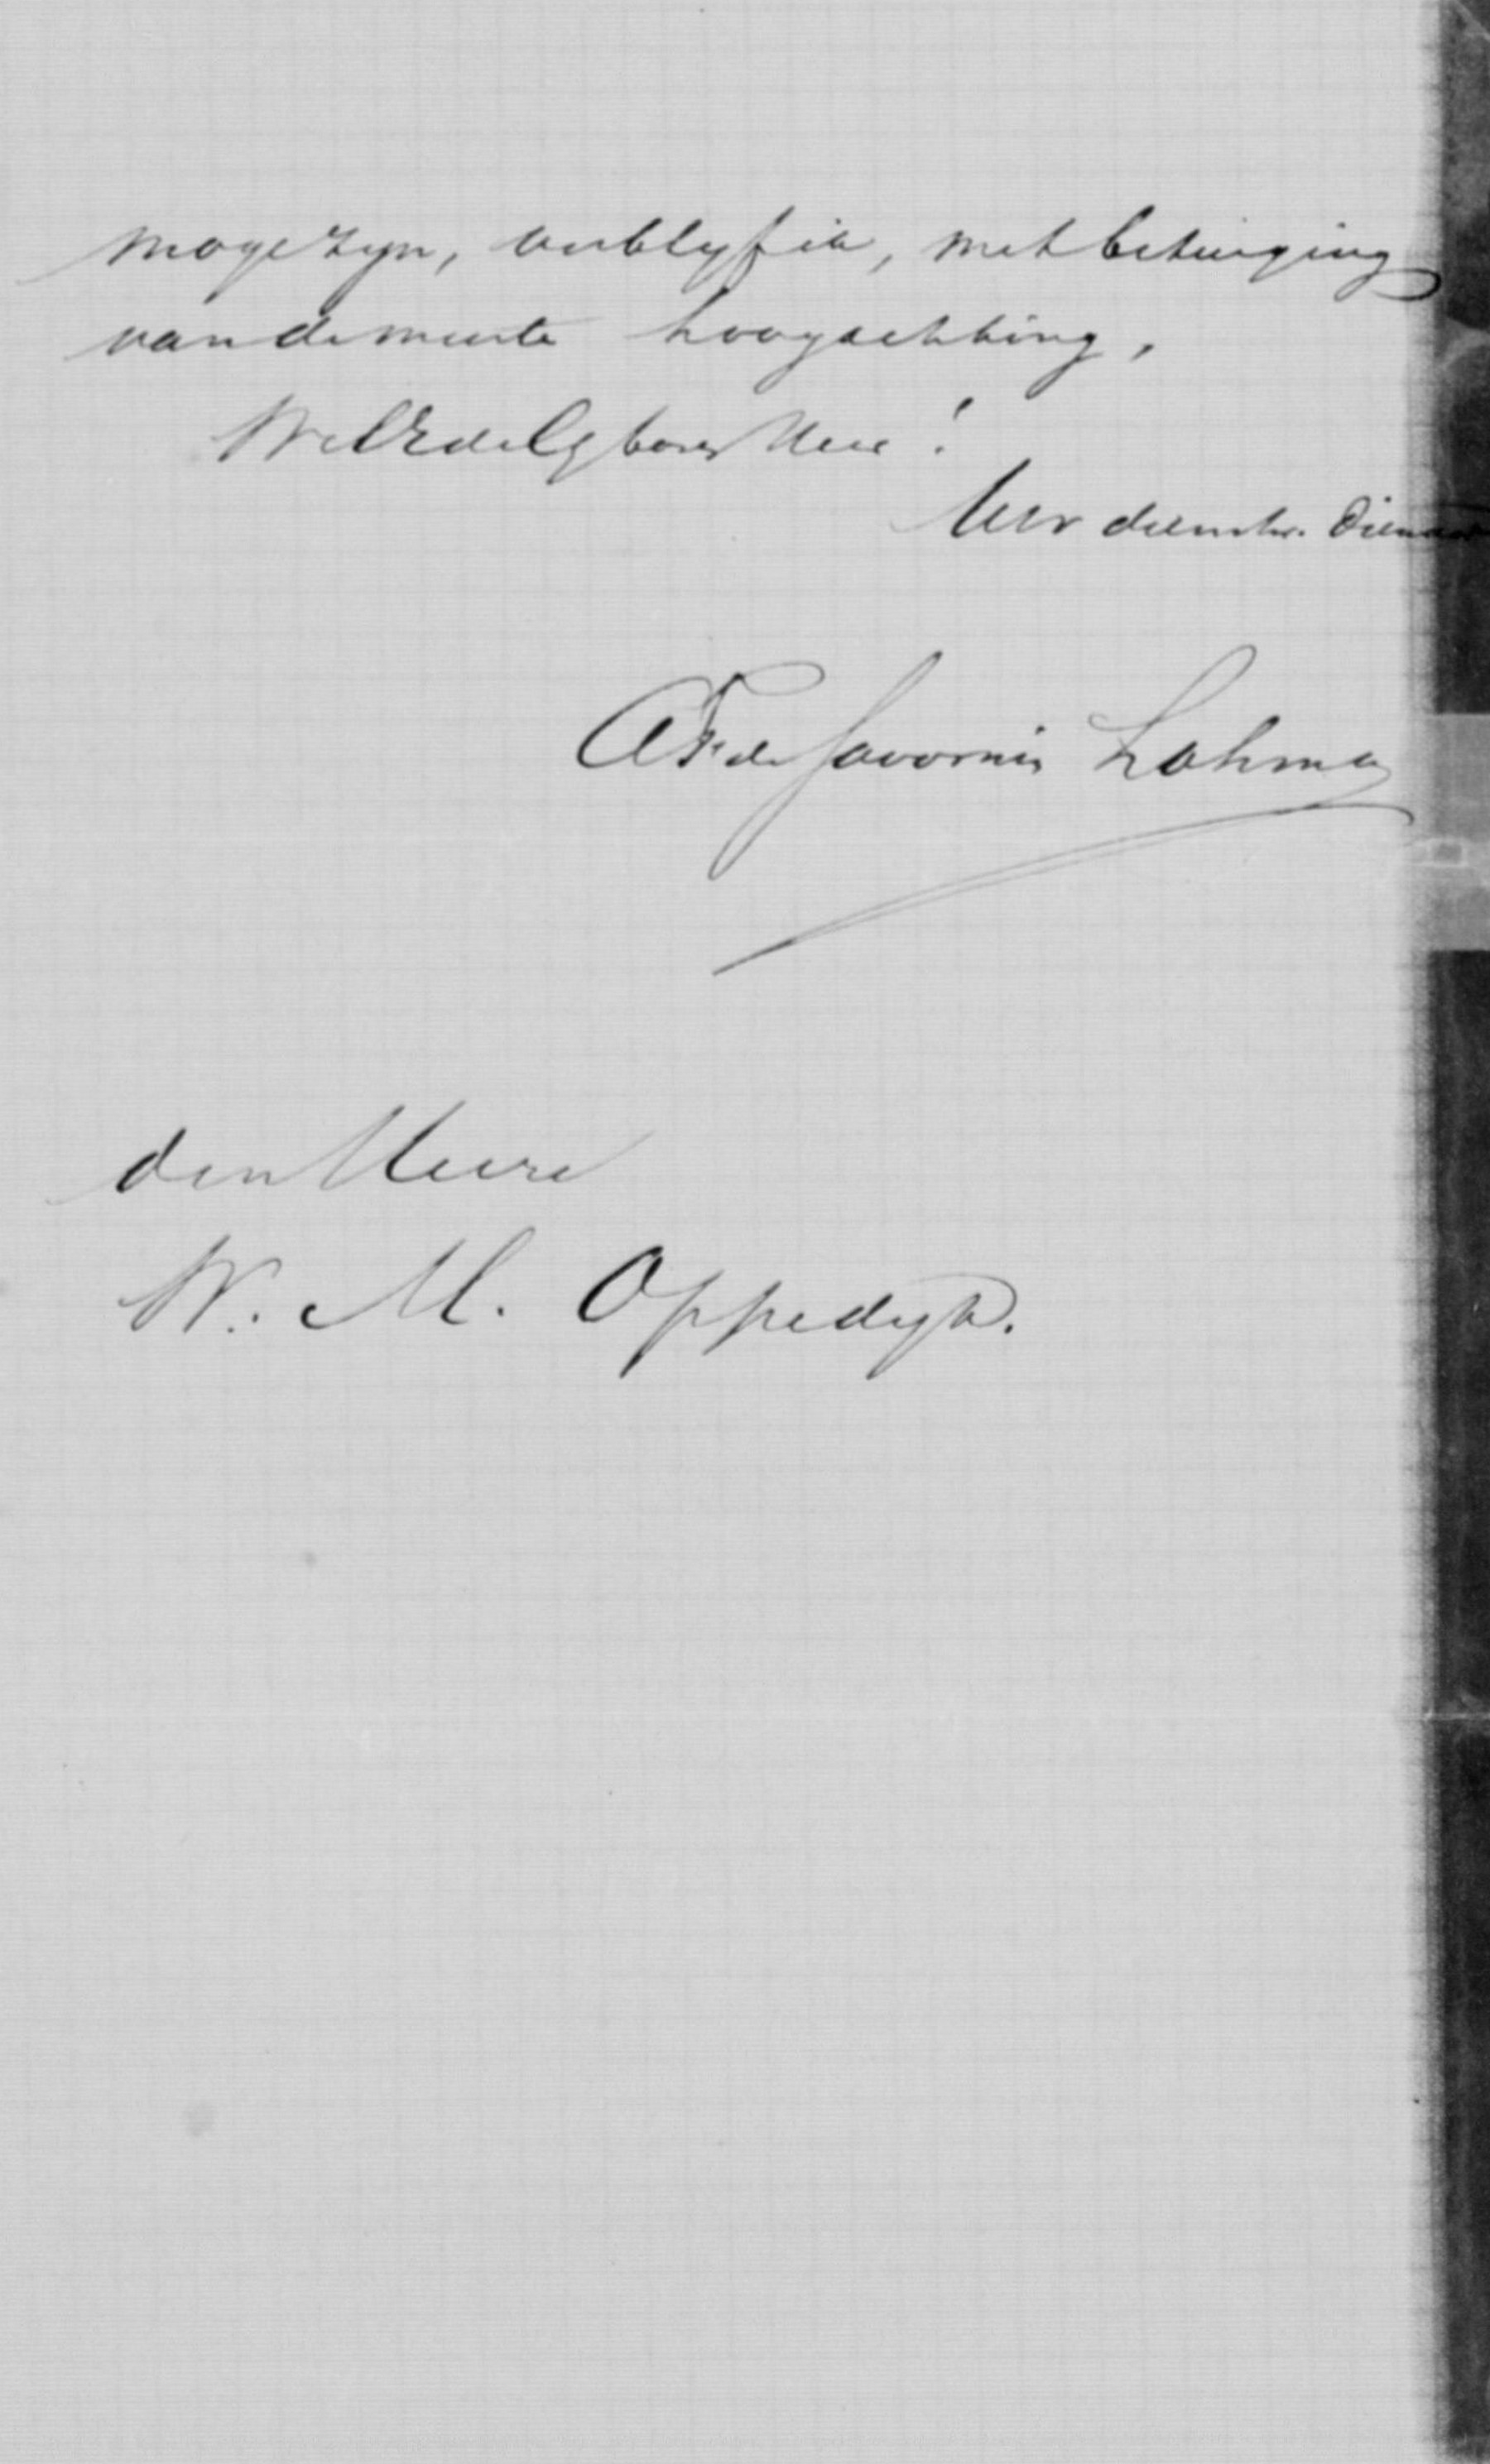 moge zyn, verblyf ik, met betuiging
van de meeste hoogachting,
WelEdelgboren Heer!
Uw dienstw. Dienaar
AF de Savornin Lohman
den Heere
W. M. Oppedyk.